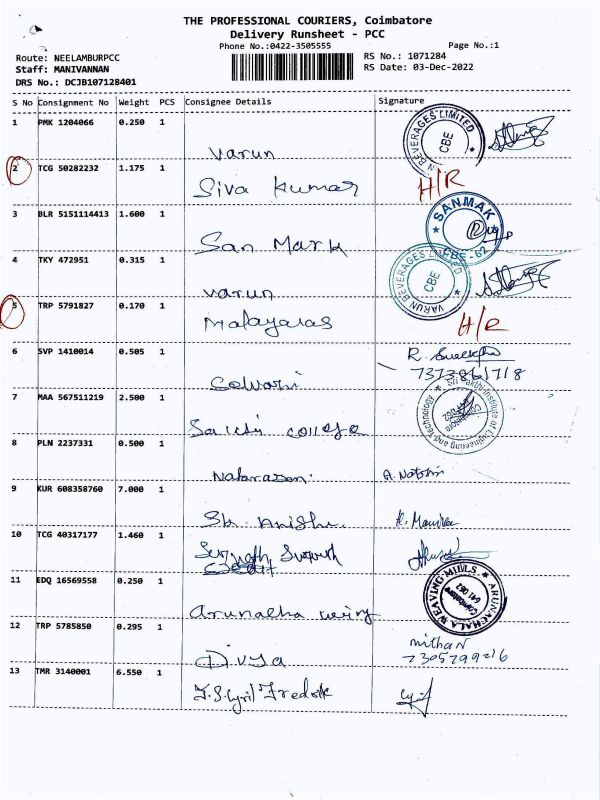 THE PROFESSIONAL COURIERS, Coimbatore
Delivery Runsheet - PCC
Phone No.:0422-3505555
Page No.:1
Route: NEELAMBURPCC
RS No.: 1071284
Staff: MANIVANNAN
RS Date: 03-Dec-2022
DRS No.: DCJB107128401
S No Consignment No Weight PCS Consignee Details Signature
1 PMK 1204066 0.250 1
BEVERAGES LIMITED
CBE
Varun
2 TCG 50282232 1.175 1
Siva Kumar H/R
3 BLR 5151114413 1.600 1
SANMAK
CBE-62
San Mark
4 TKY 472951 0.315 1
VARUN BEVERAGES LIMITED
CBE
varun
5 TRP 5791827 0.170 1
Malayaras H/R
6 SVP 1410014 0.505 1
R.
7373861718
7 MAA 567511219 2.500 1
Institute of Engineering and Technology
college
8 PLN 2237331 0.500 1
Natarasan A.
9 KUR 608358760 7.000 1
10 TCG 40317177 1.460 1
11 EDQ 16569558 0.250 1
ARUNACHALA WEAVING MILLS
Coimbatore
641 062
Arunalha
12 TRP 5785850 0.295 1
mithan
Divya
13 TMR 3140001 6.550 1
J.S.Cyril Fredrik